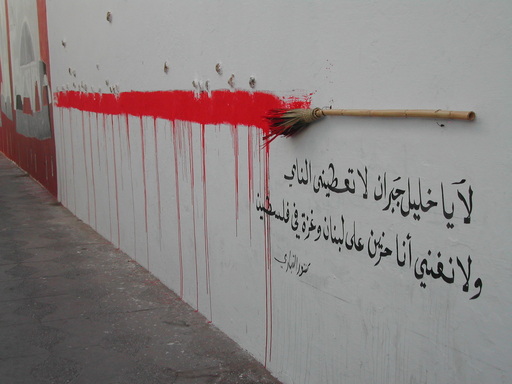 لا يا خليل جبران لا تعطيني الناي
ولا نغني أنا حزين على لبنان وغزة في فلسطين